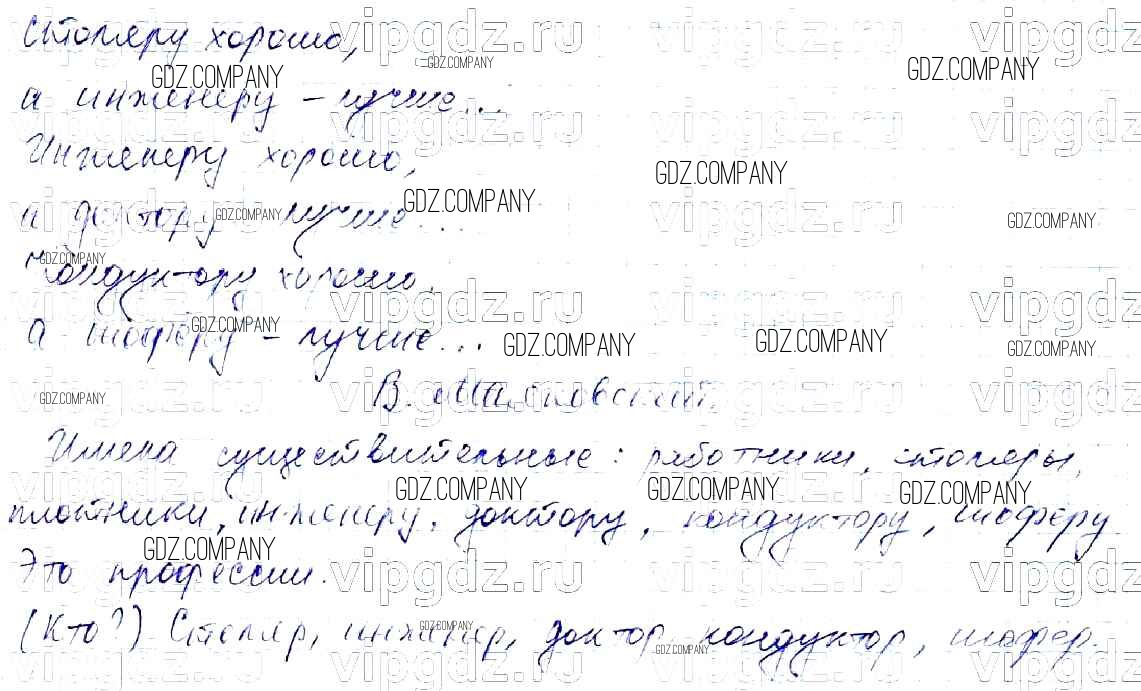 Столяру хорошо,
а инженеру – лучше...
Инженеру хорошо,
а доктору лучше...
Кондуктору хорошо,
а шофёру – лучше...
В. Маяковский.
Имена существительные: работники, столяры,
плотники, инженеру, доктору, кондуктору, шоферу
Это профессии.
(Кто?) Столяр, инженер, доктор, кондуктор, шофер.
vipgdz.ru
GDZ.COMPANY